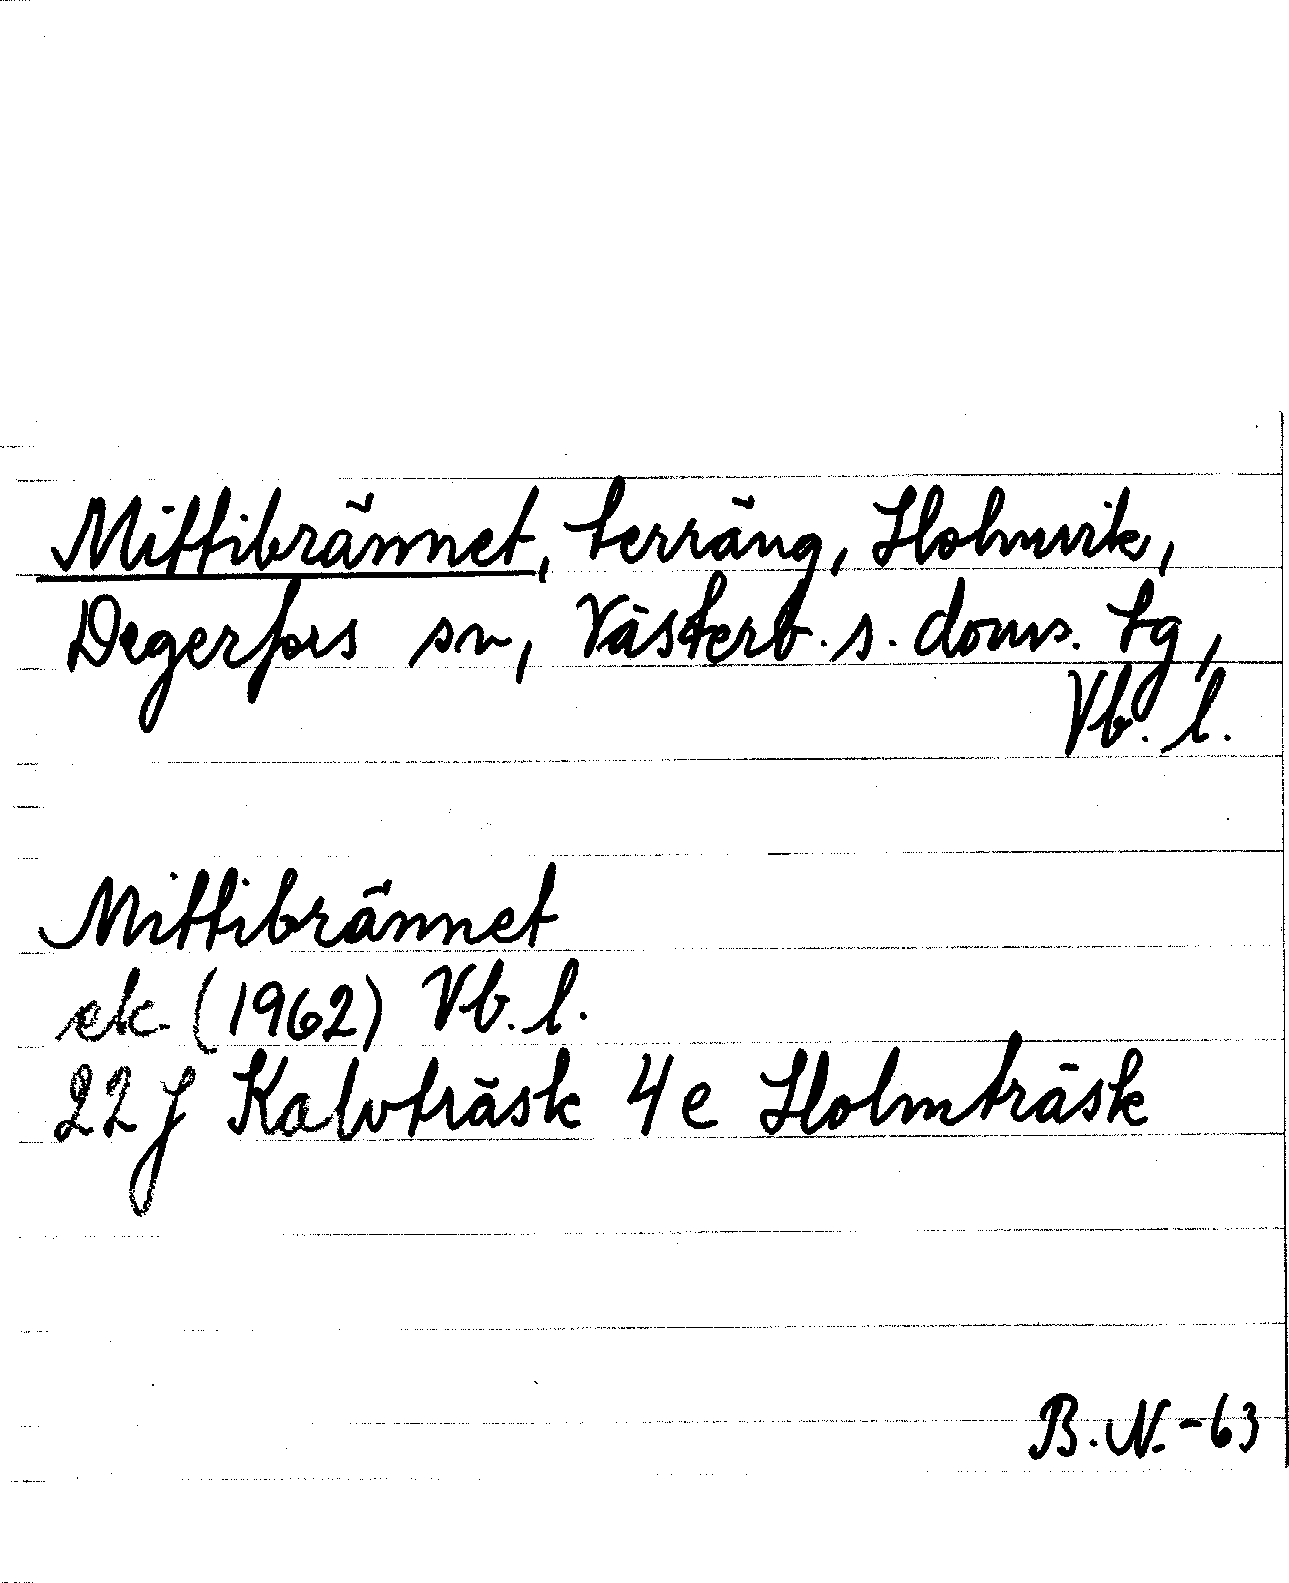 Mittibrännet, terräng, Holmvik,
Degerfors sn, Västerb. s. doms. tg,
Vb. l.
Mittibrännet
ek. (1962) Vb. l.
22 J Kalvträsk 4 e Holmträsk
B.N.-63